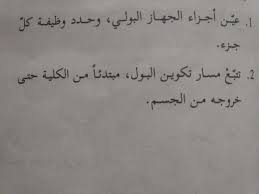 1. عيّن أجزاء الجهاز البولي، وحدد وظيفة كلّ
جزء.
2. تتبّعْ مسار تكوين البول، مبتدئاً من الكلية حتى
خروجه من الجسم.